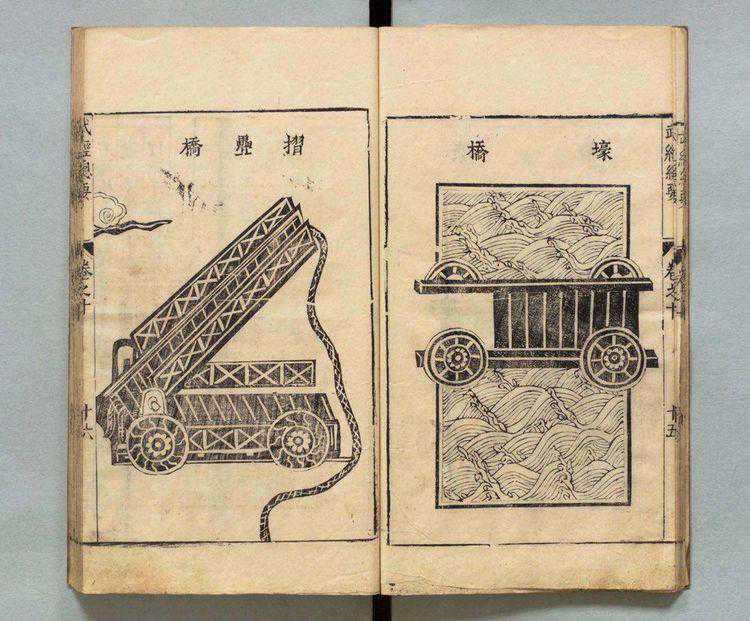 武經總要
卷之十
廿五
壕橋
摺疊橋
武經總要
卷之十
廿六